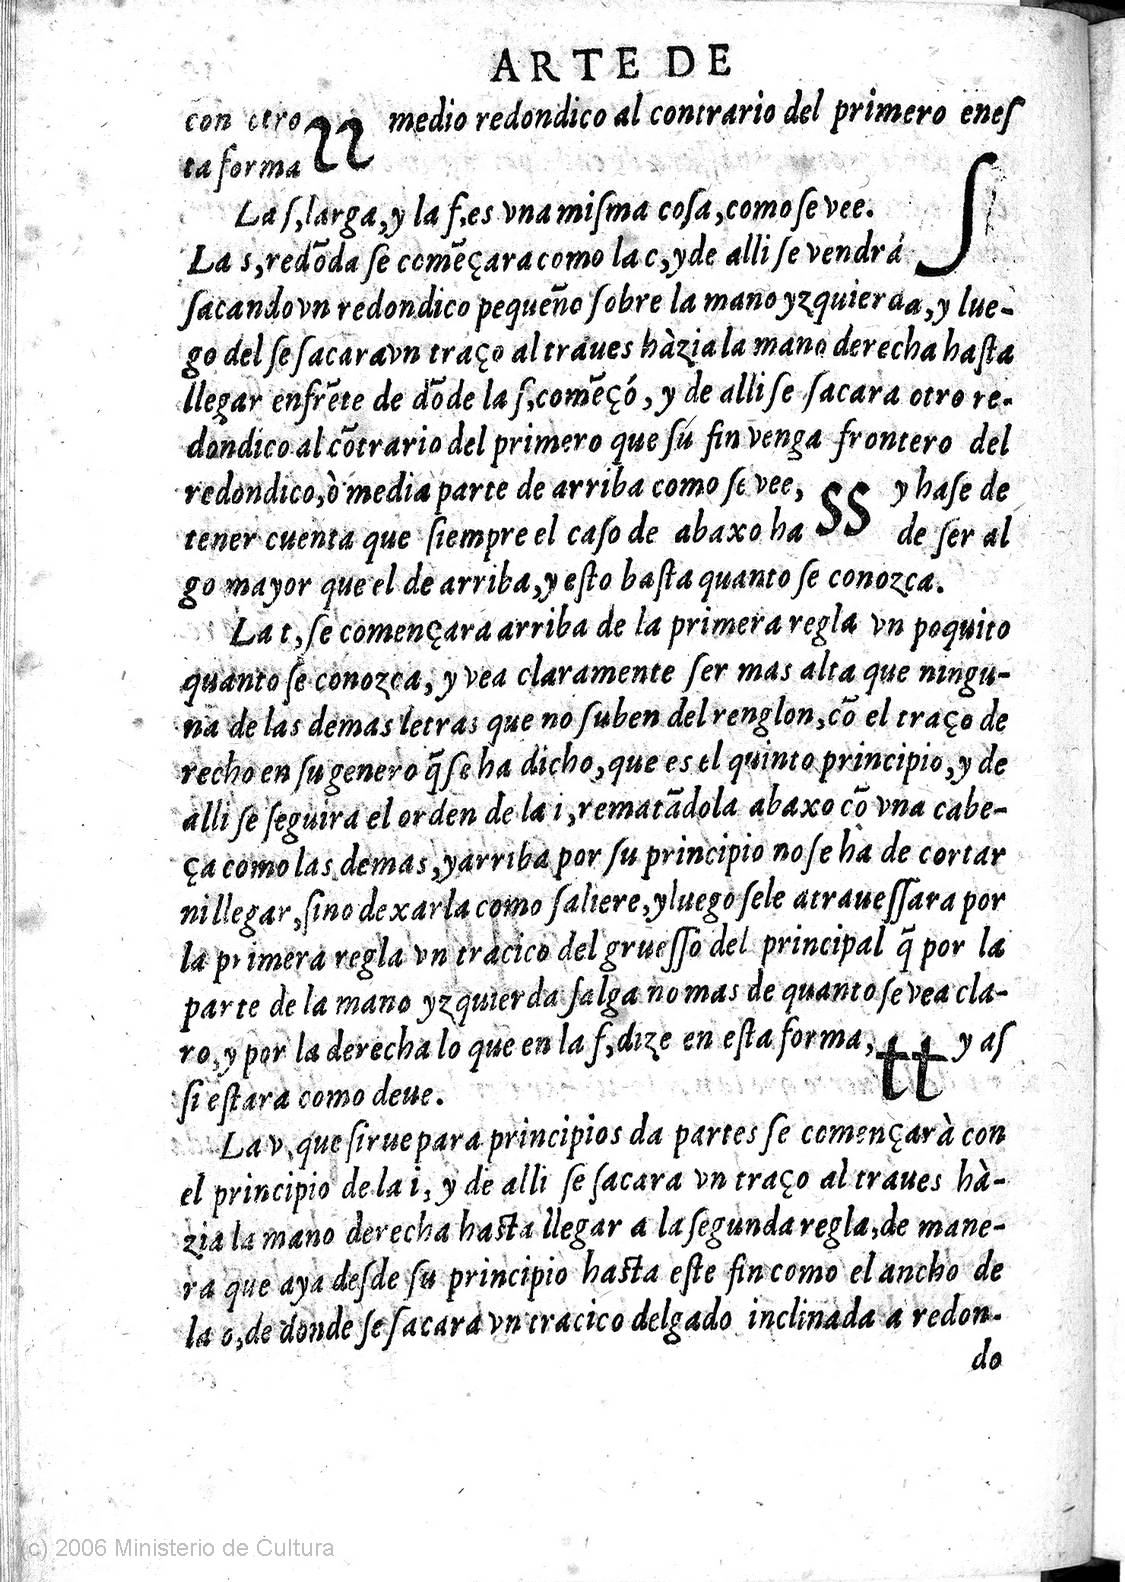 ARTE DE
con otro ꝛꝛ medio redondico al contrario del primero eneſ
ta forma
La ſ, larga, y la f, es vna miſma coſa, como ſe vee. ſ
La s, redõda ſe comẽçara como la c, y de alli ſe vendrá
ſacando vn redondico pequeño ſobre la mano yzquierda, y lue-
go del ſe ſacara vn traço al traues hàzia la mano derecha haſta
llegar enfrẽte de dõde la ſ, comẽçó, y de alli ſe ſacara otro re-
dondico al cõtrario del primero que ſu fin venga frontero del
redondico, ò media parte de arriba como ſe vee, ss y haſe de
tener cuenta que ſiempre el caſo de abaxo ha de ſer al
go mayor que el de arriba, y eſto baſta quanto ſe conozca.
La t, ſe començara arriba de la primera regla vn poquito
quanto ſe conozca, y vea claramente ſer mas alta que ningu-
na de las demas letras que no ſuben del renglon, cõ el traço de
recho en ſu genero q̃ ſe ha dicho, que es el quinto principio, y de
alli ſe ſeguira el orden de la i, rematãdola abaxo cõ vna cabe-
ça como las demas, y arriba por ſu principio no ſe ha de cortar
ni llegar, ſino dexarla como ſaliere, y luego ſele atraueſſara por
la primera regla vn tracico del grueſſo del principal q̃ por la
parte de la mano yzquierda ſalga no mas de quanto ſe vea cla-
ro, y por la derecha lo que en la f, dize en eſta forma, tt y aſ
ſi eſtara como deue.
La v, que ſirue para principios da partes ſe començarà con
el principio de la i, y de alli ſe ſacara vn traço al traues hà-
zia la mano derecha haſta llegar a la ſegunda regla, de mane-
ra que aya deſde ſu principio haſta eſte fin como el ancho de
la o, de donde ſe ſacara vn tracico delgado inclinada a redon-
do
(c) 2006 Ministerio de Cultura